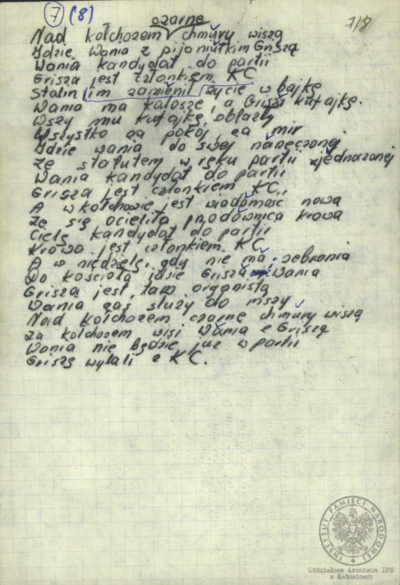 7 (8)
7/8
czarne
Nad kołchozem chmury wiszą
Idzie Wania z pijaniutkim Griszą
Wania kandydat do partii
Grisza jest członkiem KC
Stalin im zamienił życie w bajkę
Wania ma kalosze, a Grisza kufajkę.
Wszy mu kufajkę oblazły
Wszystko za pokój, za mir
Idzie wania do swej narzeczonej
Ze statutem w ręku partii zjednoczonej
Wania kandydat do partii
Grisza jest członkiem KC,
A w kołchozie jest wiadomość nowa
Że się ocieliła przodownica krowa
Cielę kandydat do partii
Krowa jest członkiem KC,
A w niedzielę, gdy nie ma zebrania
Do kościoła idzie Grisza Wania
Grisza jest tam organistą
Wania zaś służy do mszy,
Nad kołchozem czarne chmury wiszą
Za kołchozem wisi Wania z Griszą
Wania nie będzie już w partii
Griszę wylali z KC.
INSTYTUT PAMIĘCI NARODOWEJ
Oddziałowe Archiwum IPN
w Katowicach